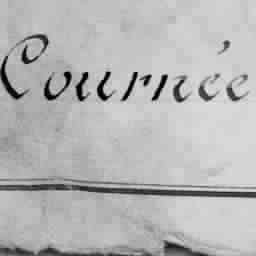 Cournée